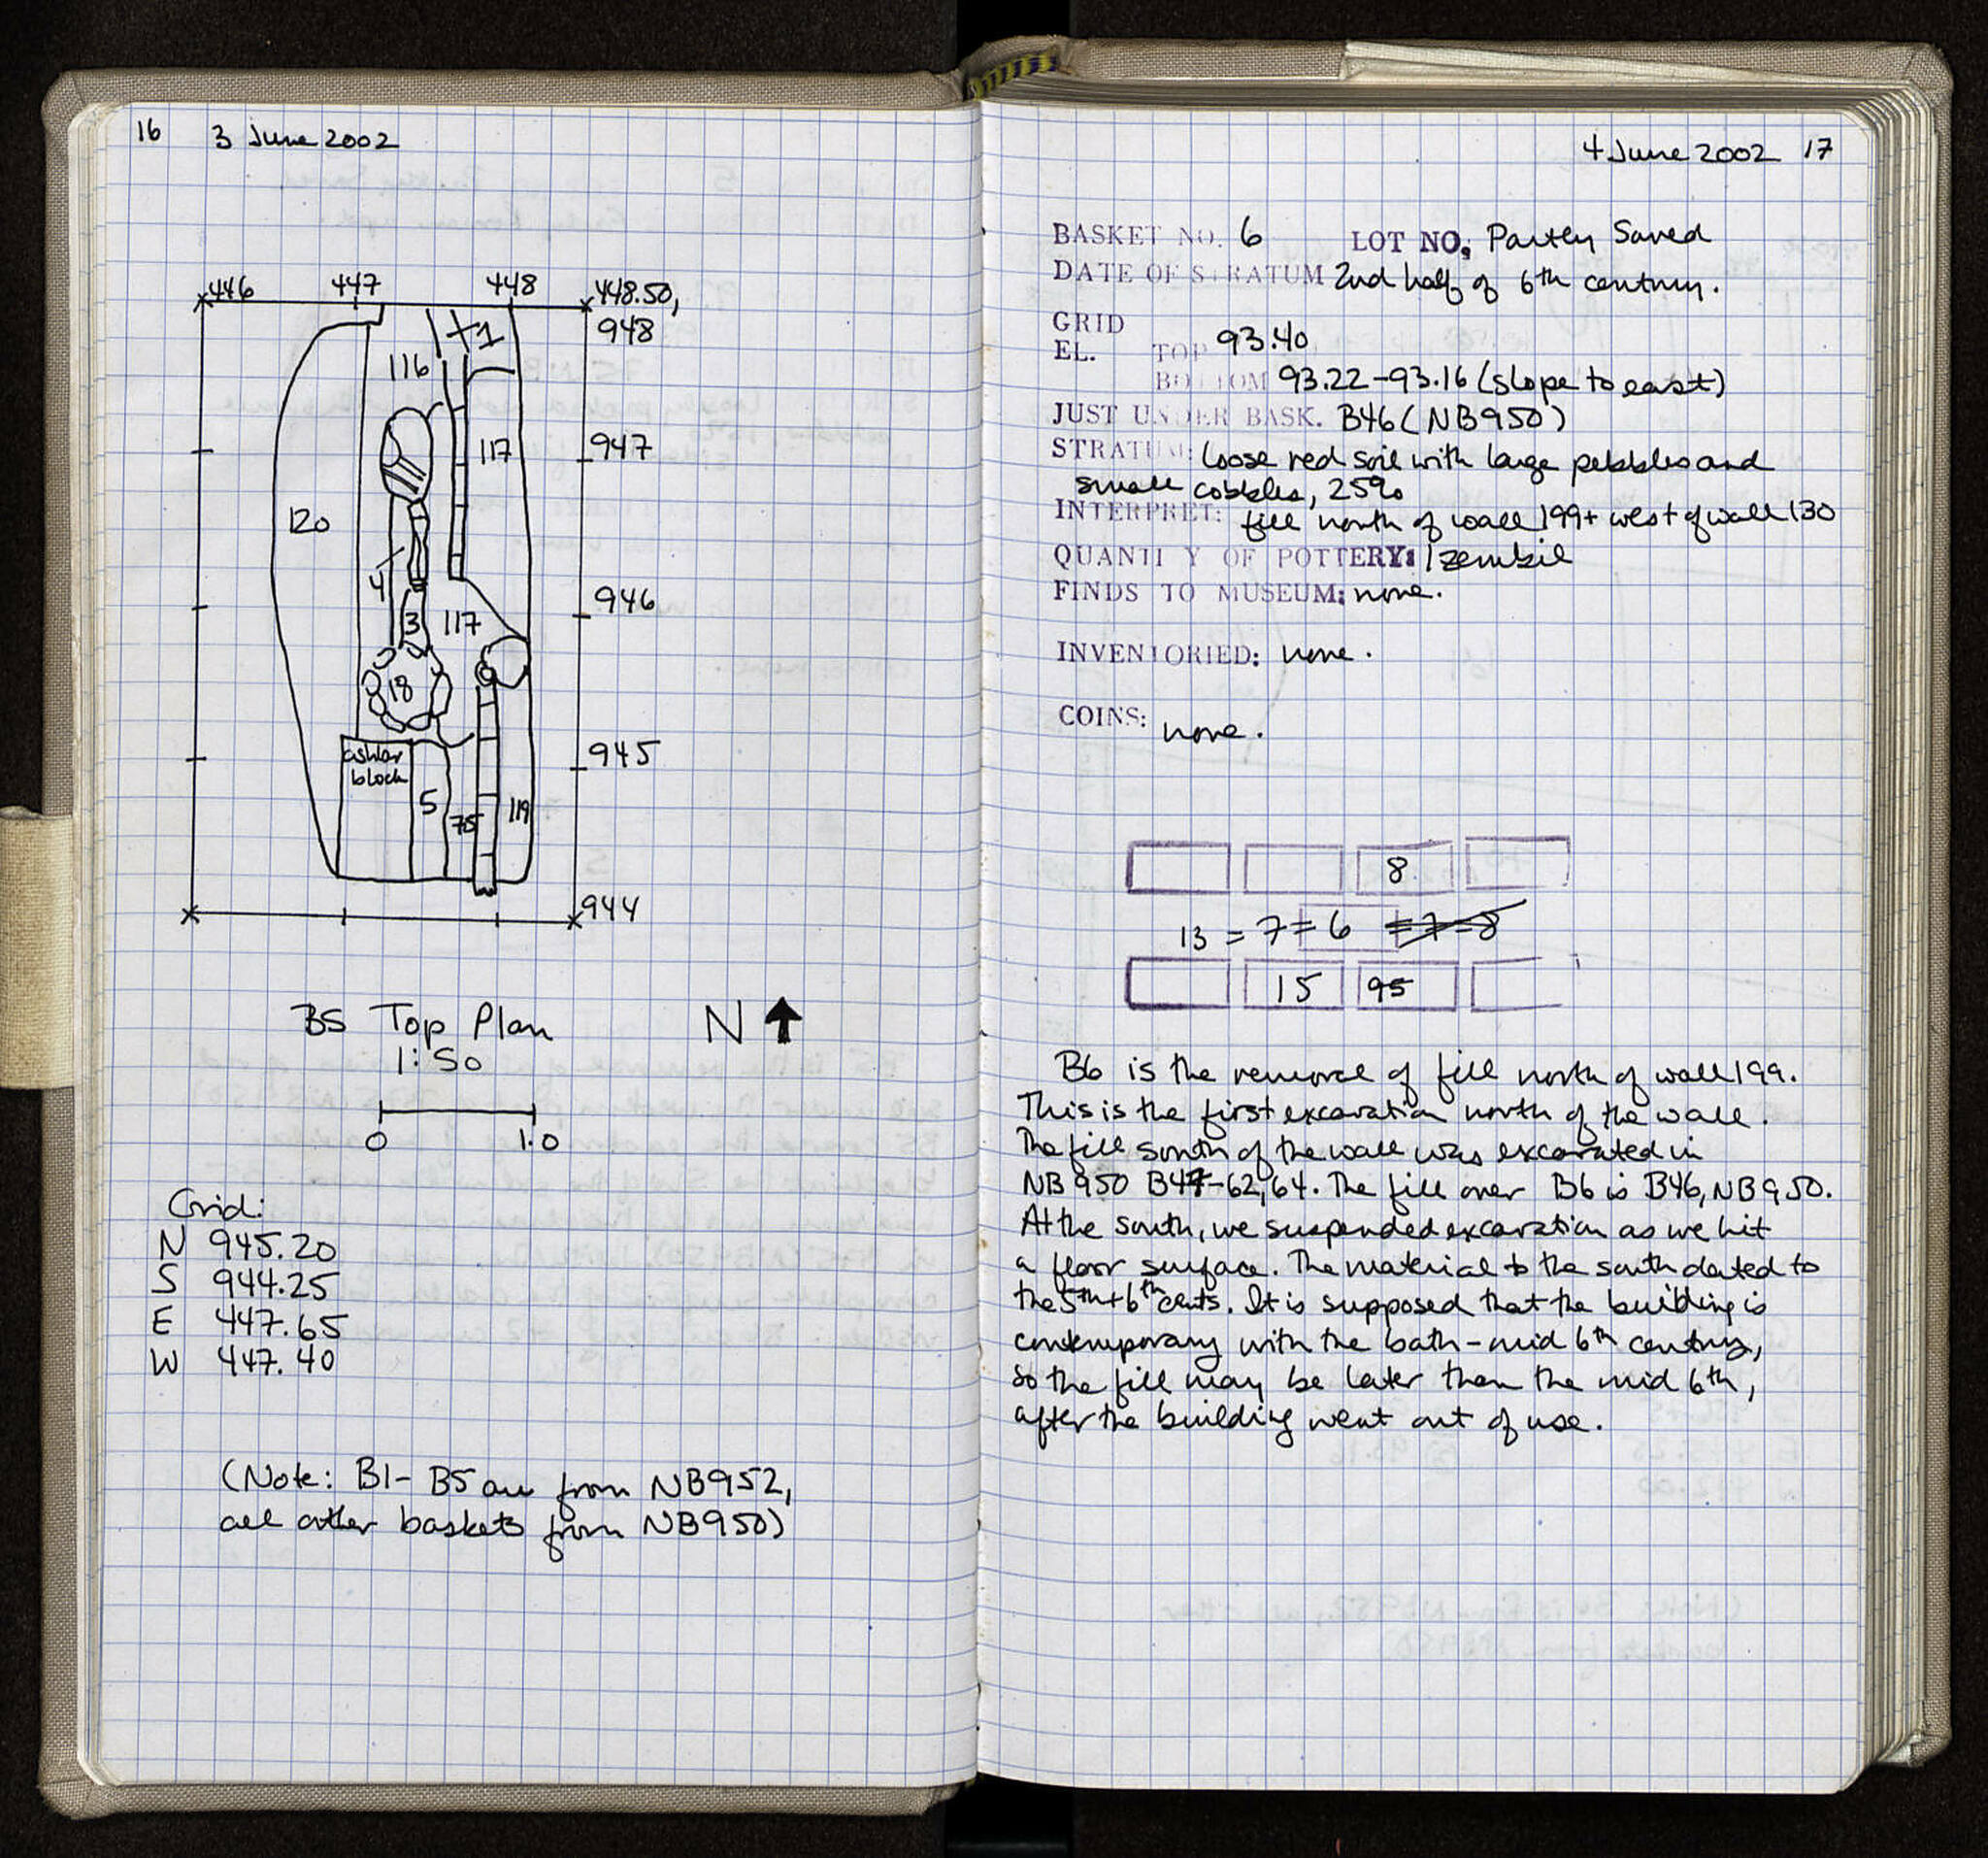 16 3 June 2002
446 447 448 448.50,
948
116
117
947
120
4
946
3 117
18
945
ashlar
block
5 75 119
944
B5 Top Plan N
1:50
0 1.0
Grid:
N 945.20
S 944.25
E 447.65
W 447.40
(Note: B1-B5 are from NB952,
all other baskets from NB950)
4 June 2002 17
BASKET NO. 6 LOT NO. Partly Saved
DATE OF STRATUM 2nd half of 6th century.
GRID
EL. TOP 93.40
BOTTOM 93.22-93.16 (slope to east)
JUST UNDER BASK. B46 (NB950)
STRATUM: loose red soil with large pebbles and
small cobbles, 25%
INTERPRET: fill north of wall 199 + west of wall 130
QUANTITY OF POTTERY: 1 zembil
FINDS TO MUSEUM: none.
INVENTORIED: none.
COINS: none.
8
13 = 7 = 6 = 7 = 8
15 95
B6 is the removal of fill north of wall 199.
This is the first excavation north of the wall.
The fill south of the wall was excavated in
NB950 B47-62, 64. The fill over B6 is B46, NB950.
At the south, we suspended excavation as we hit
a floor surface. The material to the south dated to
the 5th + 6th cents. It is supposed that the building is
contemporary with the bath - mid 6th century,
so the fill may be later than the mid 6th,
after the building went out of use.